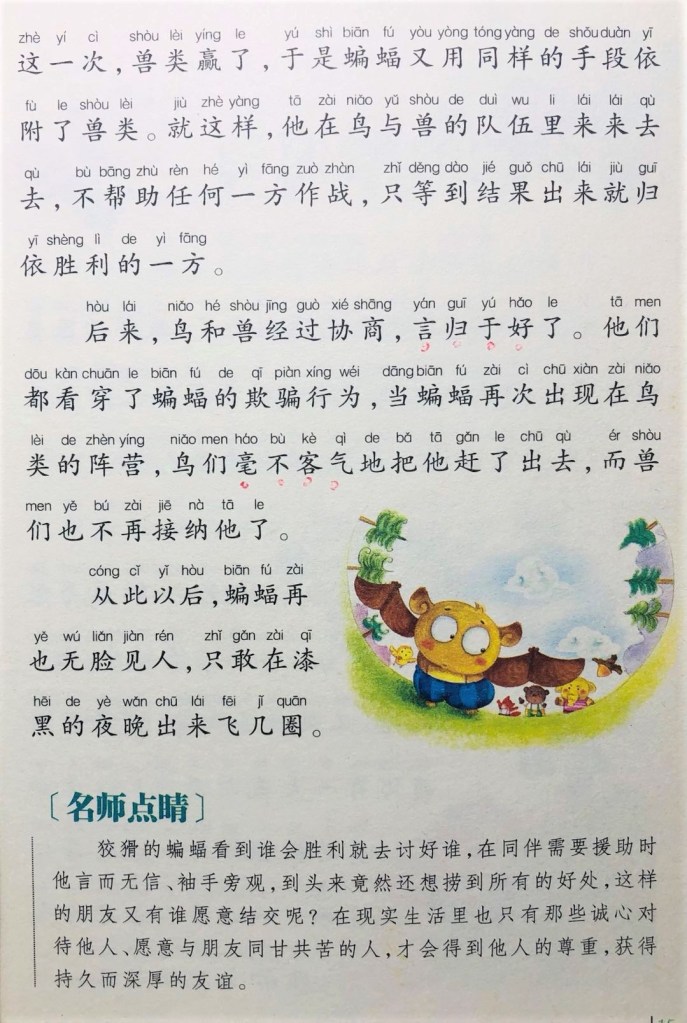 zhè yí cì shòu lèi yíng le yú shì biān fú yòu yòng tóng yàng de shǒu duàn yī
这一次，兽类赢了，于是蝙蝠又用同样的手段依
fù le shòu lèi jiù zhè yàng tā zài niǎo yǔ shòu de duì wu li lái lái qù
附了兽类。就这样，他在鸟与兽的队伍里来来去
qù bù bāng zhù rèn hé yì fāng zuò zhàn zhǐ děng dào jié guǒ chū lái jiù guī
去，不帮助任何一方作战，只等到结果出来就归
yī shèng lì de yì fāng
依胜利的一方。
hòu lái niǎo hé shòu jīng guò xié shāng yán guī yú hǎo le tā men
后来，鸟和兽经过协商，言归于好了。他们
dōu kàn chuān le biān fú de qī piàn xíng wéi dāng biān fú zài cì chū xiàn zài niǎo
都看穿了蝙蝠的欺骗行为，当蝙蝠再次出现在鸟
lèi de zhèn yíng niǎo men háo bù kè qì de bǎ tā gǎn le chū qù ér shòu
类的阵营，鸟们毫不客气地把他赶了出去，而兽
men yě bú zài jiē nà tā le
们也不再接纳他了。
cóng cǐ yǐ hòu biān fú zài
从此以后，蝙蝠再
yě wú liǎn jiàn rén zhǐ gǎn zài qī
也无脸见人，只敢在漆
hēi de yè wǎn chū lái fēi jǐ quān
黑的夜晚出来飞几圈。
〔名师点睛〕
狡猾的蝙蝠看到谁会胜利就去讨好谁，在同伴需要援助时
他言而无信、袖手旁观，到头来竟然还想捞到所有的好处，这样
的朋友又有谁愿意结交呢？在现实生活里也只有那些诚心对
待他人、愿意与朋友同甘共苦的人，才会得到他人的尊重，获得
持久而深厚的友谊。